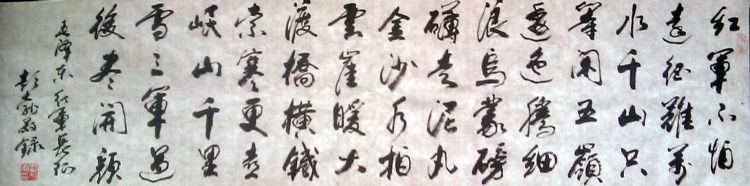 紅軍不怕
遠征難萬
水千山只
等閑五嶺
逶迤騰細
浪烏蒙磅
礴走泥丸
金沙水拍
雲崖暖大
渡橋橫鐵
索寒更喜
岷山千里
雪三軍過
後盡開顏
毛澤東紅軍長征
彭 敬錄